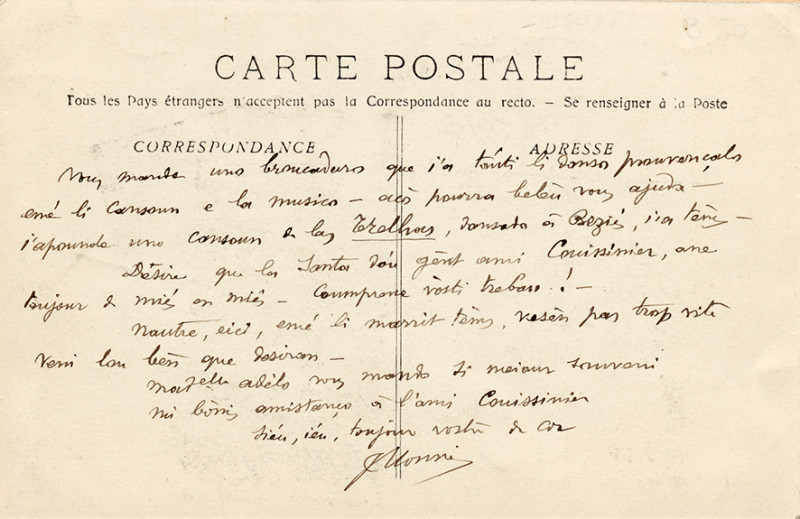 CARTE POSTALE
Tous les Pays étrangers n'acceptent pas la Correspondance au recto. — Se renseigner à la Poste
CORRESPONDANCE
ADRESSE
Vous mande uno que i'a tóuti li danso prouvençalo
emé li cansoun e la musico — acò pourra belèu vous ajuda —
i'apounde uno cansoun de las Trelhas, dansado à Beziés, i'a tèms —
Désire que la Santa dóu gènt ami Couissinier, ane
toujour de miés en miés — Coumprene vòsti trebau! —
Nautre, eici, emé li marrit tèms, vesèn pas trop vite
veni lou bèn que desiran —
Madelle Adèlo vous mando si meiour souveni
mi bòni amistanço à l'ami Couissinier
Siéu, iéu, toujour vostre de cor